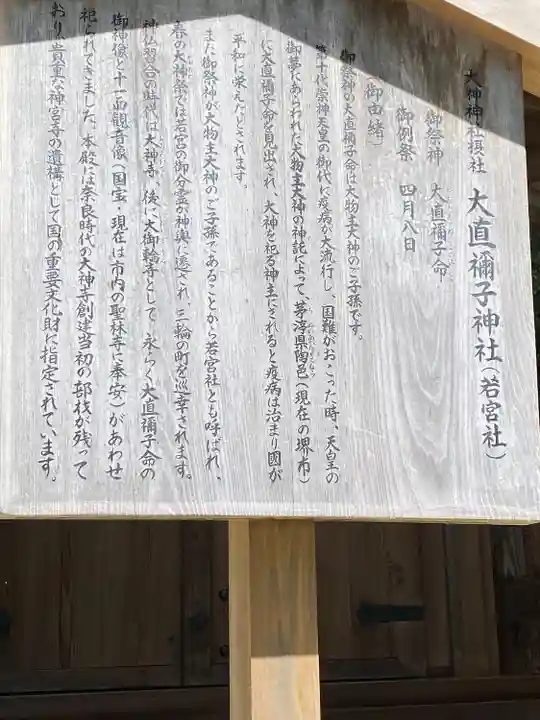 大神神社摂社 大直禰子神社(若宮社)
御祭神 大直禰子命
御例祭 四月八日
(御由緒)
御祭神の大直禰子命は大物主大神のご子孫です。
第十代崇神天皇の御代に疫病が大流行し、国難がおこった時、天皇の
御夢にあらわれた大物主大神の神託によって、茅渟県陶邑(現在の堺市)
に大直禰子命を見出され、大神を祀る神主にされると疫病は治まり國が
平和に栄えたとされます。
また、御祭神が大物主大神のご子孫であることから若宮社とも呼ばれ、
春の大神祭では若宮の御分霊が神輿に遷され、三輪の町を巡幸されます。
神仏習合の時代は大神寺、後に大御輪寺として、永らく大直禰子命の
御神像と十一面観音像(国宝・現在は市内の聖林寺に奉安)があわせ
祀られてきました。本殿には奈良時代の大神寺創建当初の部材が残って
おり、貴重な神宮寺の遺構として国の重要文化財に指定されています。